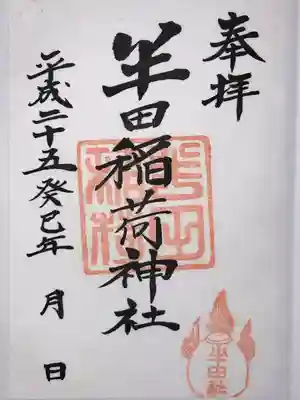 奉拝
半田稲荷神社
平成二十五癸巳年 月 日
半田稲荷
半田社